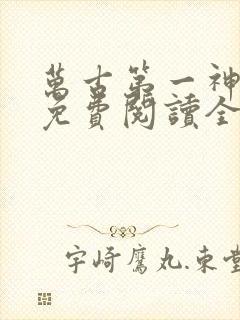 萬古第一神
免費閱讀全
宇崎鷹丸.東堂